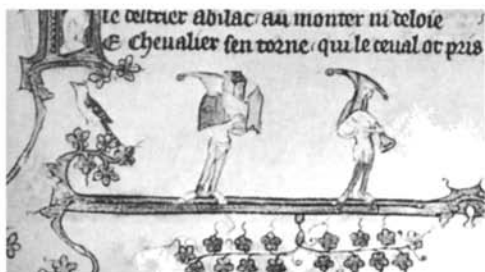 le destrier abilac au monter ni deloie
E chevalier sen torne qui le ceval ot pris